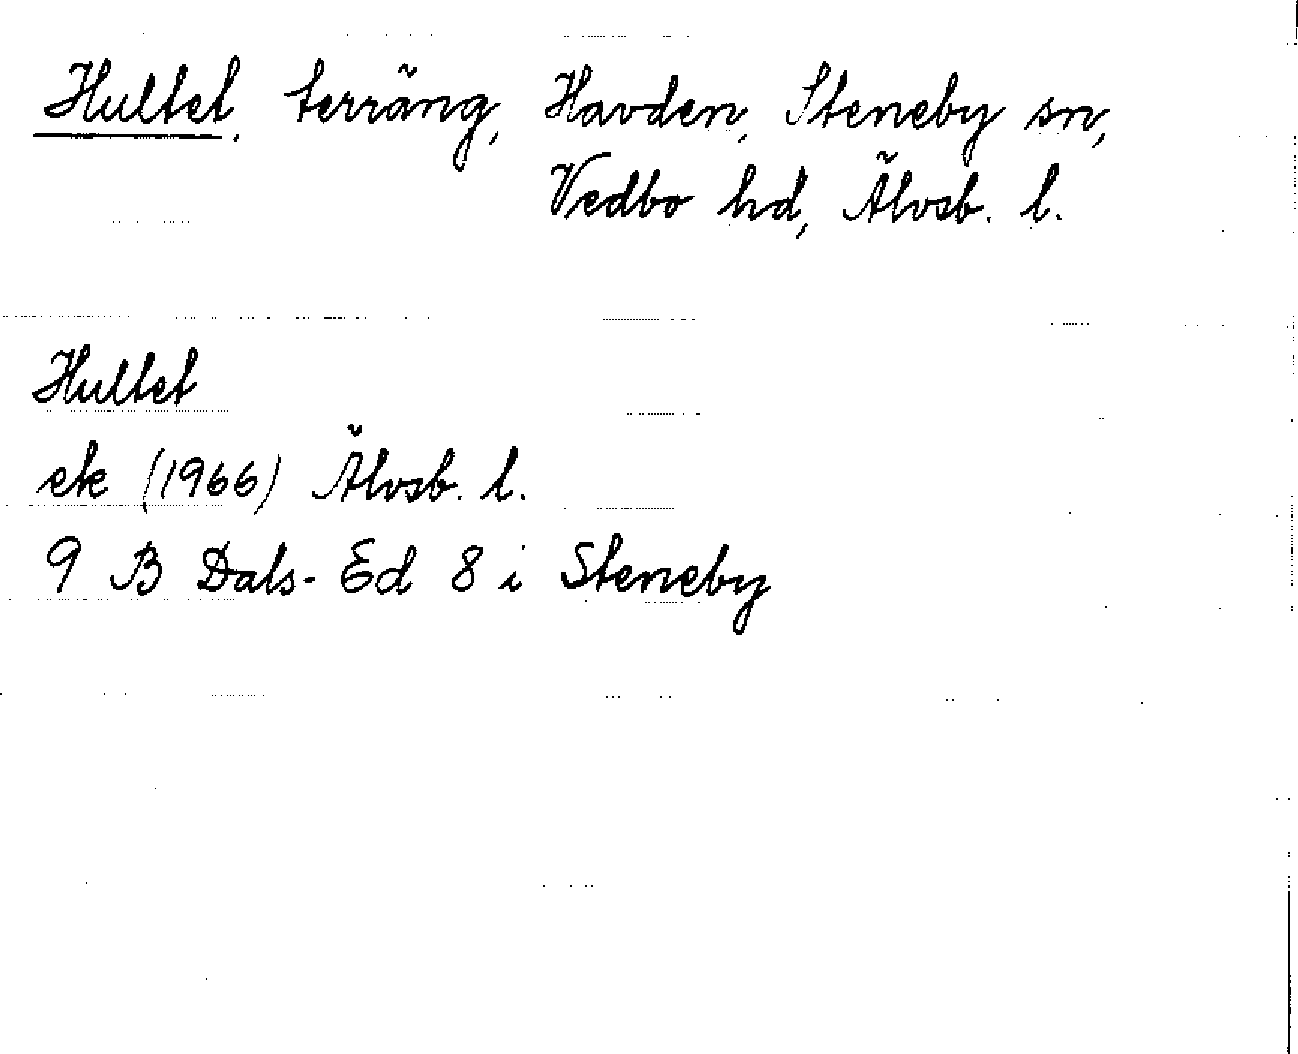 Hultet, terräng, Havden, Steneby sn,
Vedbo hd, Älvsb. l.
Hultet
ek (1966) Älvsb. l.
9 B Dals-Ed 8 i Steneby